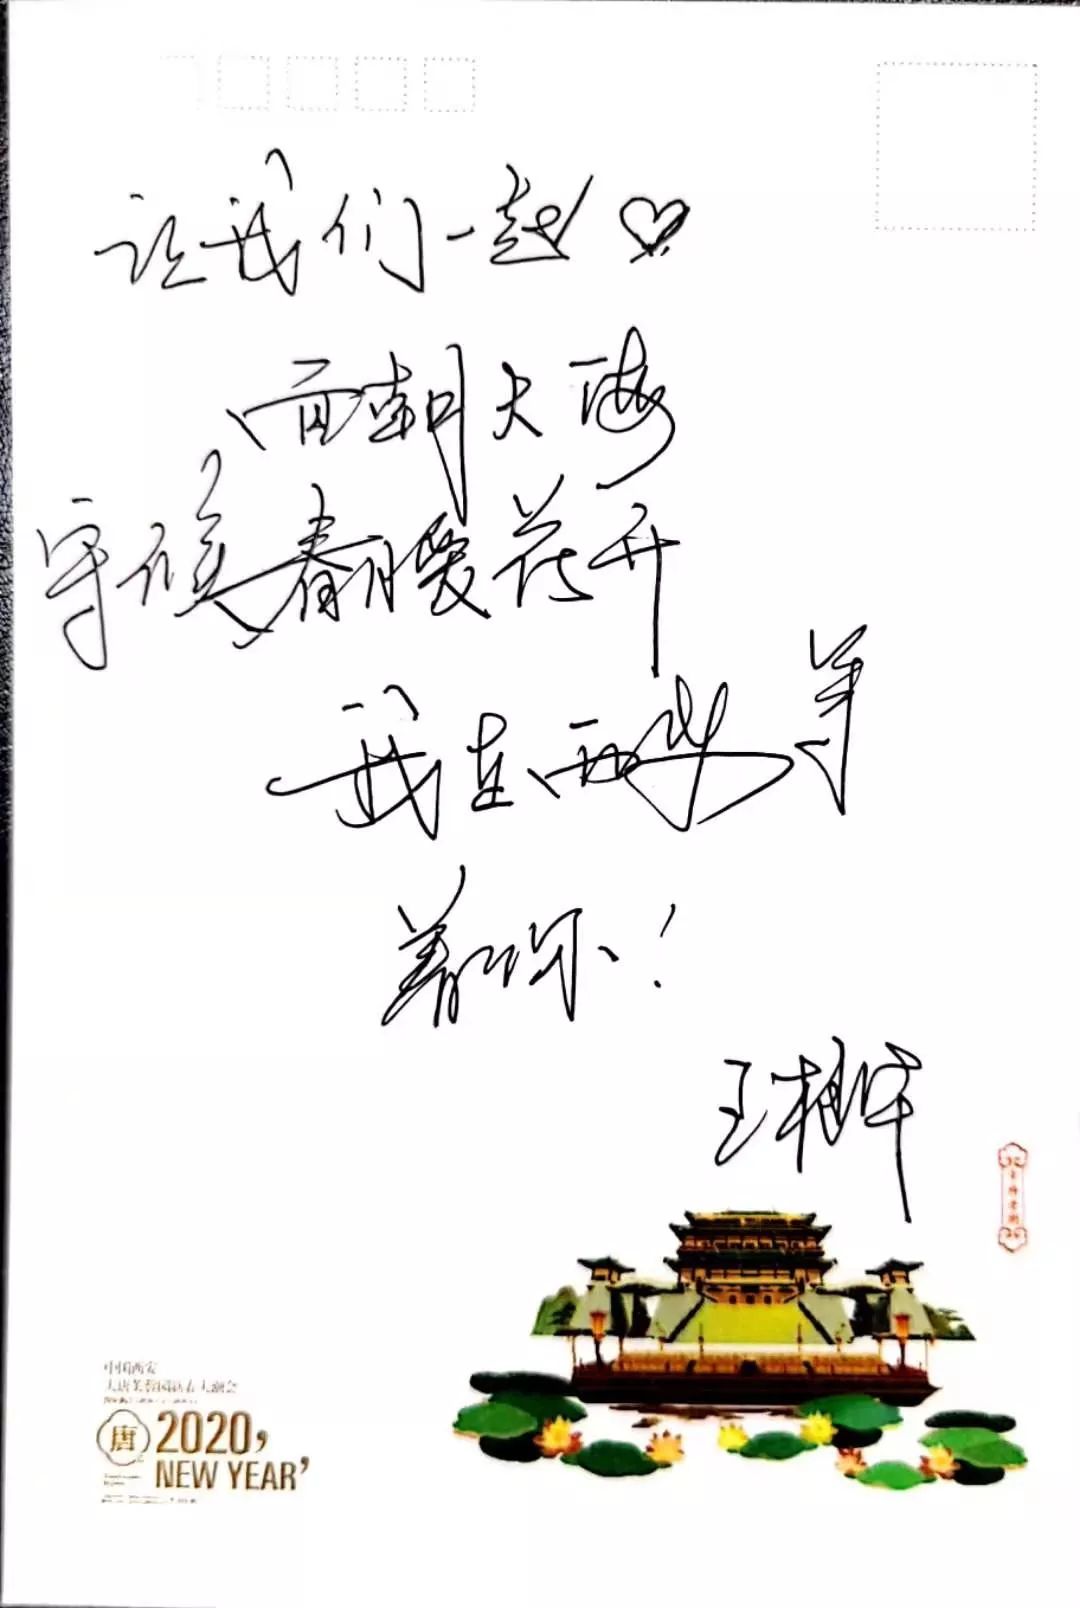 让我们一起
面朝大海
守候春暖花开
我在西安等
着你！
中国西安
大唐芙蓉园新春大潮会
唐 2020,
NEW YEAR,